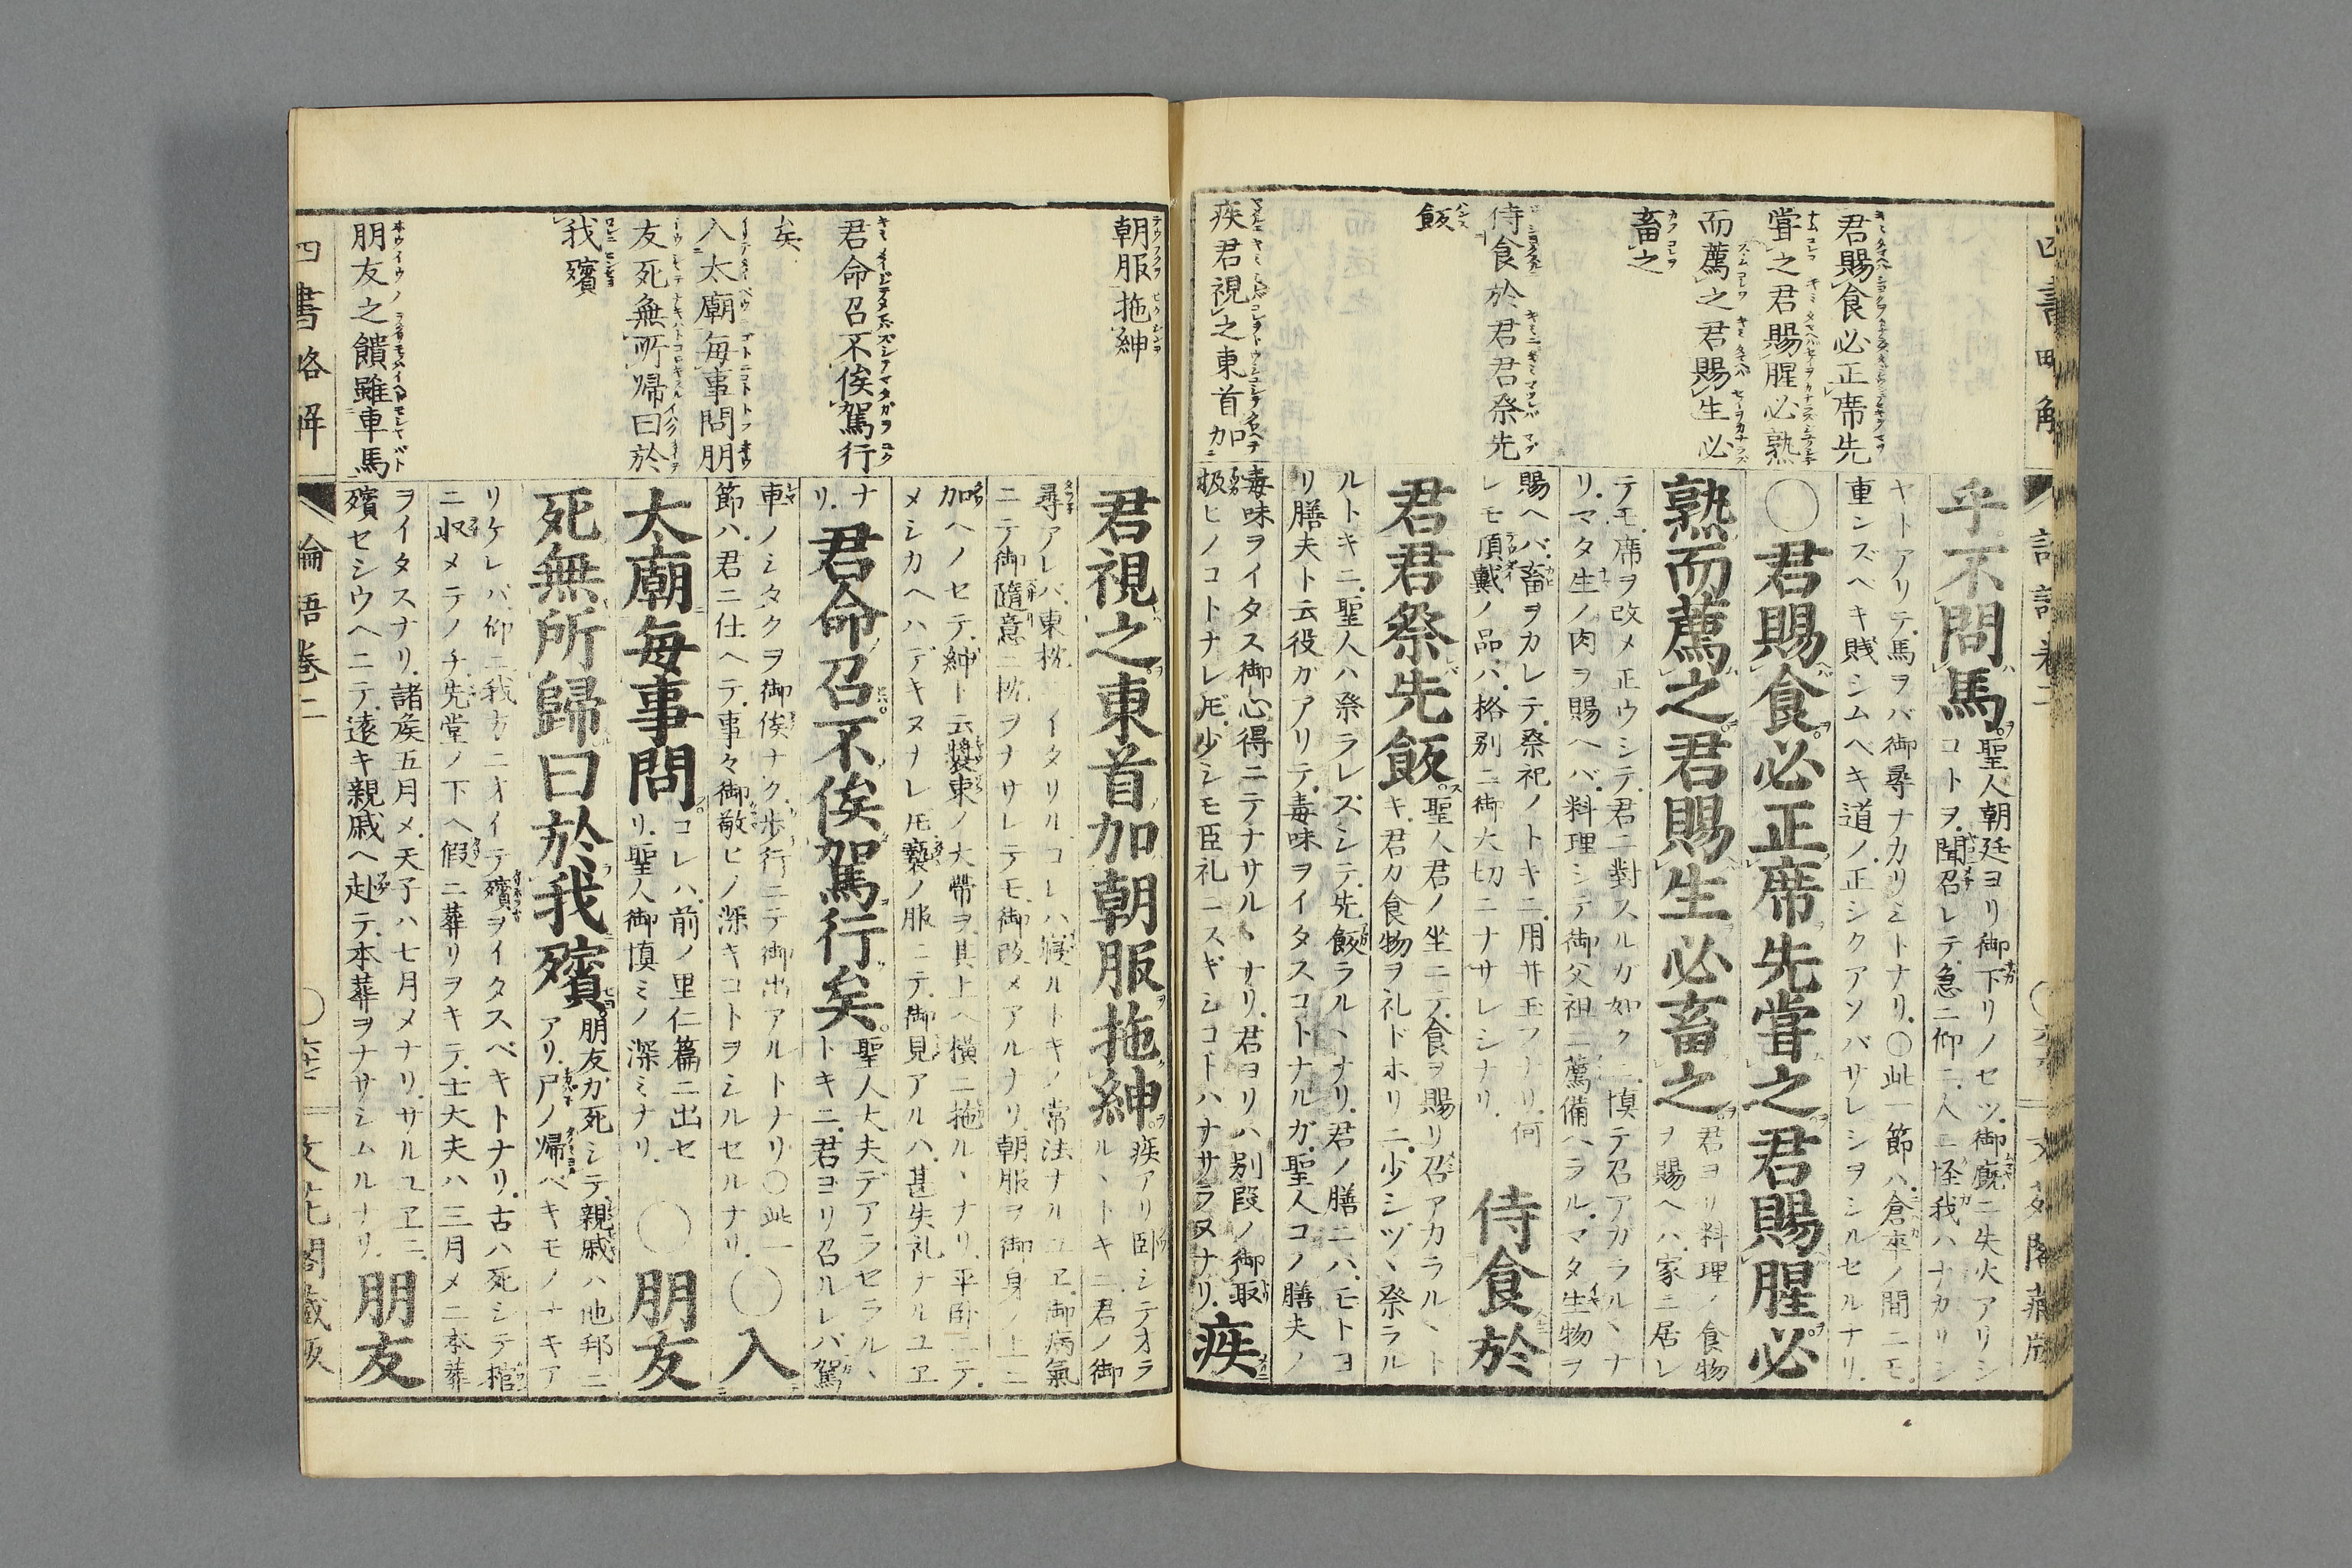 君賜食必正席先
嘗之君賜腥必熟
而薦之君賜生必
畜之
侍食於君君祭先
飯
疾君視之東首加
乎不問馬
聖人朝廷ヨリ御下リノセツ御廐ニ失火アリシ
コトヲ聞召レテ急ニ仰ニ人ニ怪我ハナカリシ
ヤトアリテ馬ヲバ御尋ナカリシトナリ〇此一節ハ倉卒ノ間ニモ
重ンズヘキ賎シムベキ道ノ正シクアソバサレシヲシルセルナリ
〇君賜食必正席先嘗之君賜腥必
熟而薦之君賜生必畜之
君ヨリ料理ノ食物
ヲ賜ヘハ家ニ居レ
テモ席ヲ改メ正ウシテ君ニ對スルガ如クニ慎テ召アガラルヽナ
リマタ生ノ肉ヲ賜ヘバ料理シテ御父祖ニ薦備ヘラルマタ生物ヲ
賜ヘバ畜ヲカレテ祭祀ノトキニ用井玉フナリ何
レモ頂戴ノ品ハ格別ニ御大切ニナサレシナリ
侍食於
君君祭先飯
聖人君ノ坐ニテ食ヲ賜リ召アカラルヽト
キ君カ食物ヲ礼ドホリニ少シヅヽ祭ラル
ルトキニ聖人ハ祭ラレズシテ先飯ラルヽナリ君ノ膳ニハモトヨ
リ膳夫ト云役ガアリテ毒味ヲイタスコトナルガ聖人コノ膳夫ノ
毒味ヲイタス御心得ニテナサルヽナリ君ヨリハ別段ノ御取
扱ヒノコトナレ𪜈少シモ臣礼ニスギシコトハナサラヌナリ
疾
朝服拖紳
君命召不俟駕行
矣
入太廟毎事問朋
友死無所歸曰於
我殯
朋友之饋雖車馬
君視之東首加朝服拖紳
疾アリ臥シテオラ
ルヽトキニ君ノ御
尋アレバ東枕ニイタリルコレハ寝ルトキノ常法ナルユヱ御病氣
ニテ御隨意ニ枕ヲナサレテモ御改メアルナリ朝服ヲ御身ノ上ニ
加ヘノセテ紳ト云裝束ノ大帶ヲ其上ヘ横ニ拖ルヽナリ平臥ニテ
メシカヘハデキヌナレ𪜈褻ノ服ニテ御見アルハ甚失礼ナルユヱ
ナ
リ
君命召不俟駕行矣
聖人大夫デアラセラルヽ
トキニ君ヨリ召ルレバ駕
車ノシタクヲ御俟ナク歩行ニテ御出アルトナリ〇此一
節ハ君ニ仕ヘテ事々御敬ヒノ深キコトヲシルセルナリ
〇入
太廟毎事問
コレハ前ノ里仁篇ニ出セ
リ聖人御慎ミノ深ミナリ
〇朋友
死無所歸曰於我殯
朋友ガ死シテ親戚ハ他邦ニ
アリ尸ノ帰ベキモノナキア
リケレバ仰ニ我方ニオイテ殯ヲイタスベキトナリ古ハ死シテ棺
ニ収メテノチ先堂ノ下ヘ假ニ葬リヲキテ士大夫ハ三月メニ本葬
ヲイタスナリ諸矦五月メ天子ハ七月メナリサルユヱニ
殯セシウヘニテ遠キ親戚ヘ赴テ本葬ヲナサシムルナリ
朋友
四書略解
論語巻二
文花閣蔵版